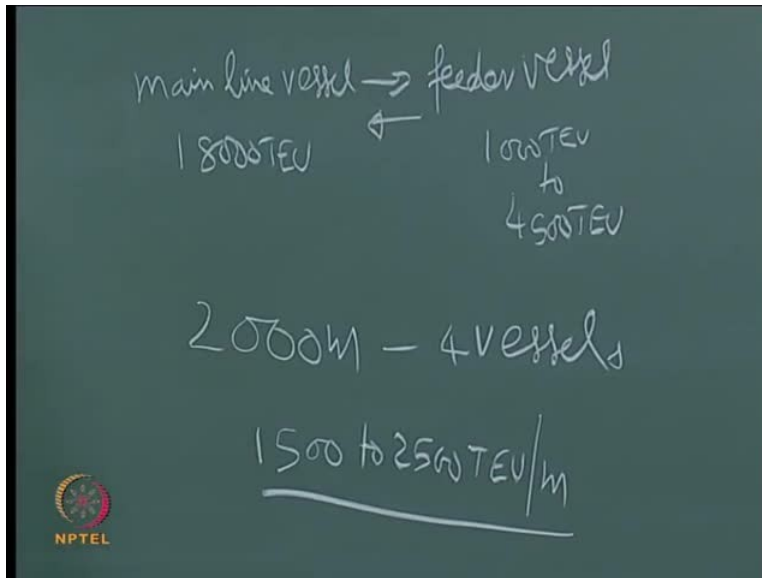 main line vessel → feeder vessel
←
18000TEU
1000TEU
to
4500TEU
2000m - 4 vessels
1500 to 2500 TEU/m
NPTEL